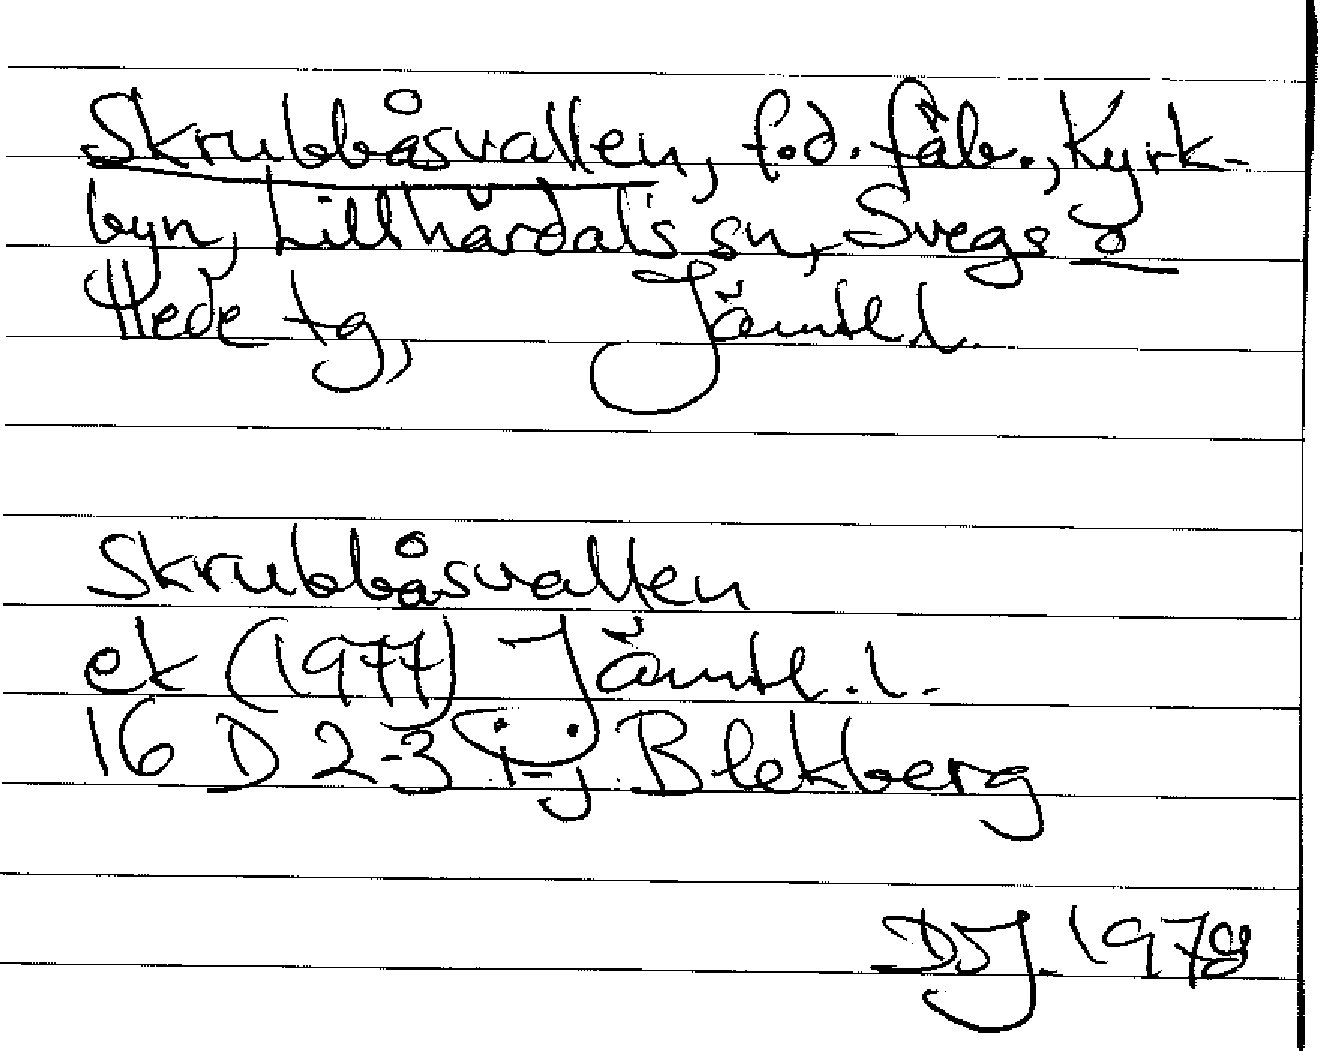 Skrubbåsvallen, f.d. fäb., Kyrk-
byn, Lillhärdals sn, Svegs o
Hede tg, Jämtl.l.
Skrubbåsvallen
ek (1977) Jämtl.l.
16 D 2-3 i-j Blekberg
DSJ. 1978